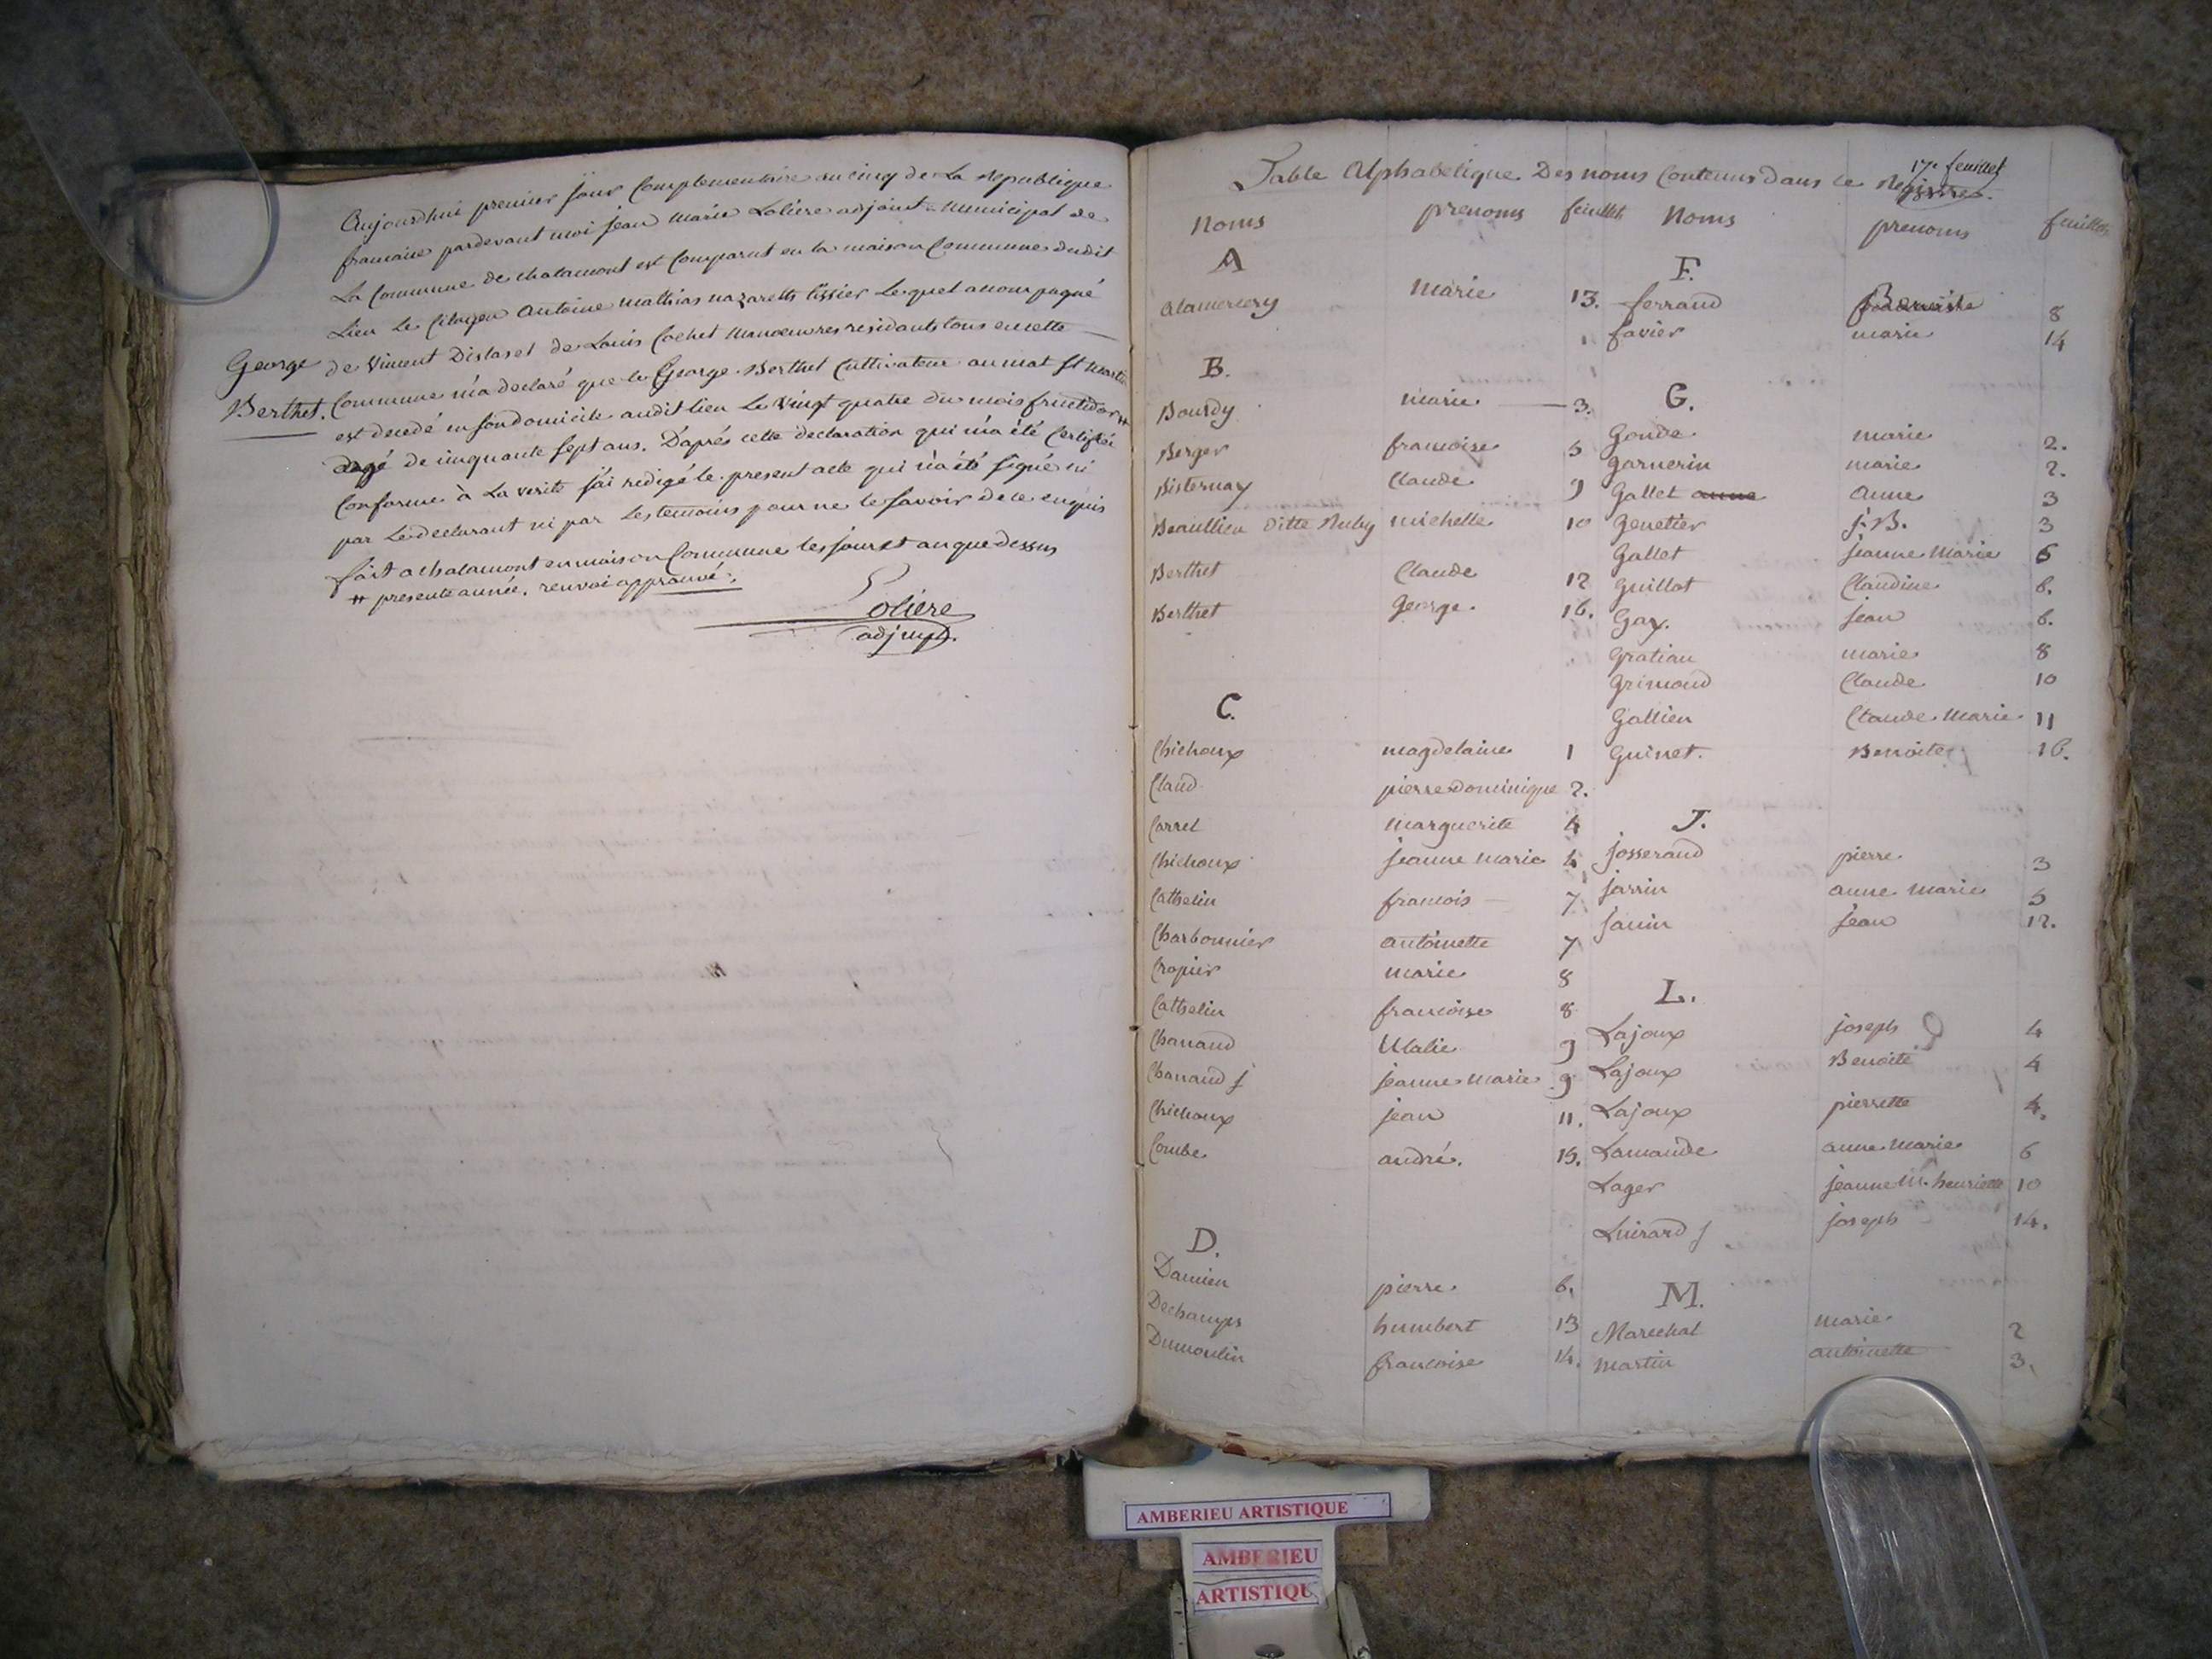 Aujourdhui premier jour Complementaire an cinq de La Republique
francaise pardevant moi jean Marie Loliere adjoint Municipal de
La Commune de chalamont est Comparut en la maison Commune dudit
Lieu Le Citoyen Antoine Mathias nazareth tissier Lequel accompagné
de Vincent Distaset de Louis Cochet Manoeuvres residants tous en cette
George
Berthet.
Commune m'a declaré que le George Berthet Cultivateur au mat st martin
est decedé en son domicile audit lieu Le Vingt quatre du mois fructidor #
agé de cinquante sept ans. D'aprés cette declaration qui m'a été Certifiée
Conforme à La verité j'ai redigé le present acte qui n'a été signé ni
par Le declarant ni par Les temoins pour ne le savoir de ce enquis
fait a chalamont en maison Commune les jour et an que dessus
# presente année. renvoi approuvé.
Loliere
adj mpl.
17e feuillet
Table Alphabetique Des noms Contenus dans ce Registre.
Noms prenoms feuillets Noms prenoms feuillets
A
Alamercery Marie 13.
B.
Bourdy marie 3.
Berger francoise 5
Bisternay Claude 9
Beaullieu ditte Ruby michelle 10
Berthet Claude 12
Berthet George. 16.
C.
Chichoux magdelaine 1
Claud pierre dominique 2.
Carrel marguerite 4
Chichoux jeanne marie 4
Cathelin francois 7
Charbonnier antoinette 7
Cropier marie 8
Cathelin francoise 8
Chanand Ulalie 9
Chanand f jeanne marie 9
Chichoux jean 11.
Combe andré. 15.
D.
Damien pierre 6.
Dechamps humbert 13
Dumoulin francoise 14.
F.
ferrand Benoite 8
favier marie 14
G.
Gonde marie 2.
Garnerin marie 2.
Gallet anne Anne 3
Genetier j. B. 3
Gallet jeanne Marie 6
Guillot Claudine 6.
Gay. jean 6.
Gratian marie 8
Grimaud Claude 10
Gallien Claude Marie 11
Guinet. Benoite 16.
J.
josserand pierre 3
jarrin anne marie 5
janin jean 12.
L.
Lajoux joseph 4
Lajoux Benoite 4
Lajoux pierrette 4.
Lamande anne marie 6
Lager jeanne M. henriette 10
Luirard f joseph 14.
M.
Marechal marie 2
Martin antoinette 3.
AMBERIEU ARTISTIQUE
AMBERIEU
ARTISTIQU